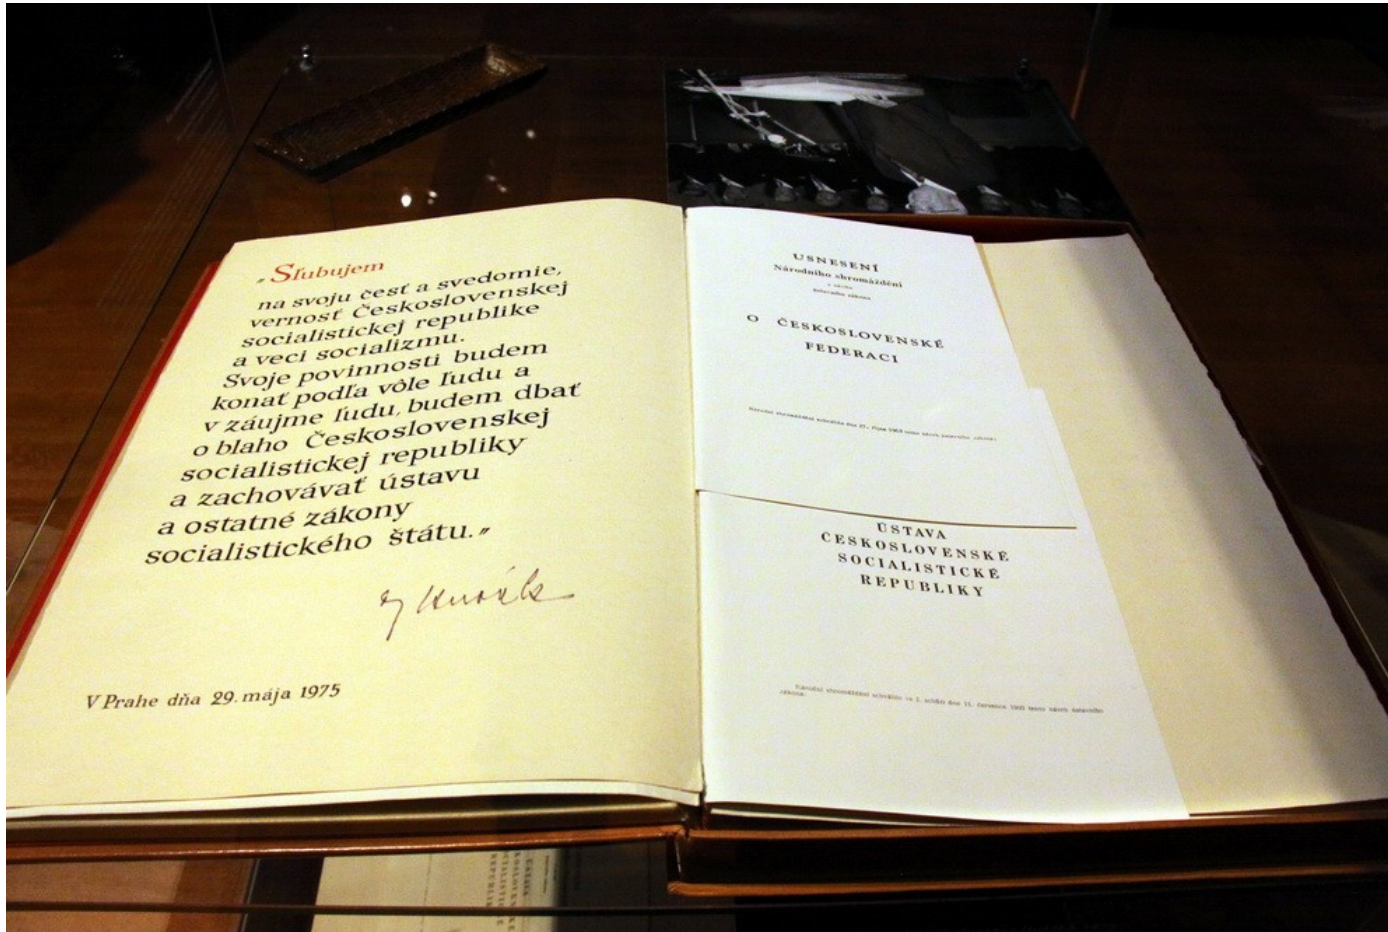 „Sľubujem
na svoju česť a svedomie,
vernosť Československej
socialistickej republike
a veci socializmu.
Svoje povinnosti budem
konať podľa vôle ľudu a
v záujme ľudu, budem dbať
o blaho Československej
socialistickej republiky
a zachovávať ústavu
a ostatné zákony
socialistického štátu.”
V Prahe dňa 29. mája 1975
USNESENÍ
Národního shromáždění
k návrhu
ústavního zákona
O ČESKOSLOVENSKÉ
FEDERACI
Národní shromáždění schválilo dne 27. října 1968 tento návrh ústavního zákona:
ÚSTAVA
ČESKOSLOVENSKÉ
SOCIALISTICKÉ
REPUBLIKY
Národní shromáždění schválilo ve 2. schůzi dne 11. července 1960 tento návrh ústavního
zákona: